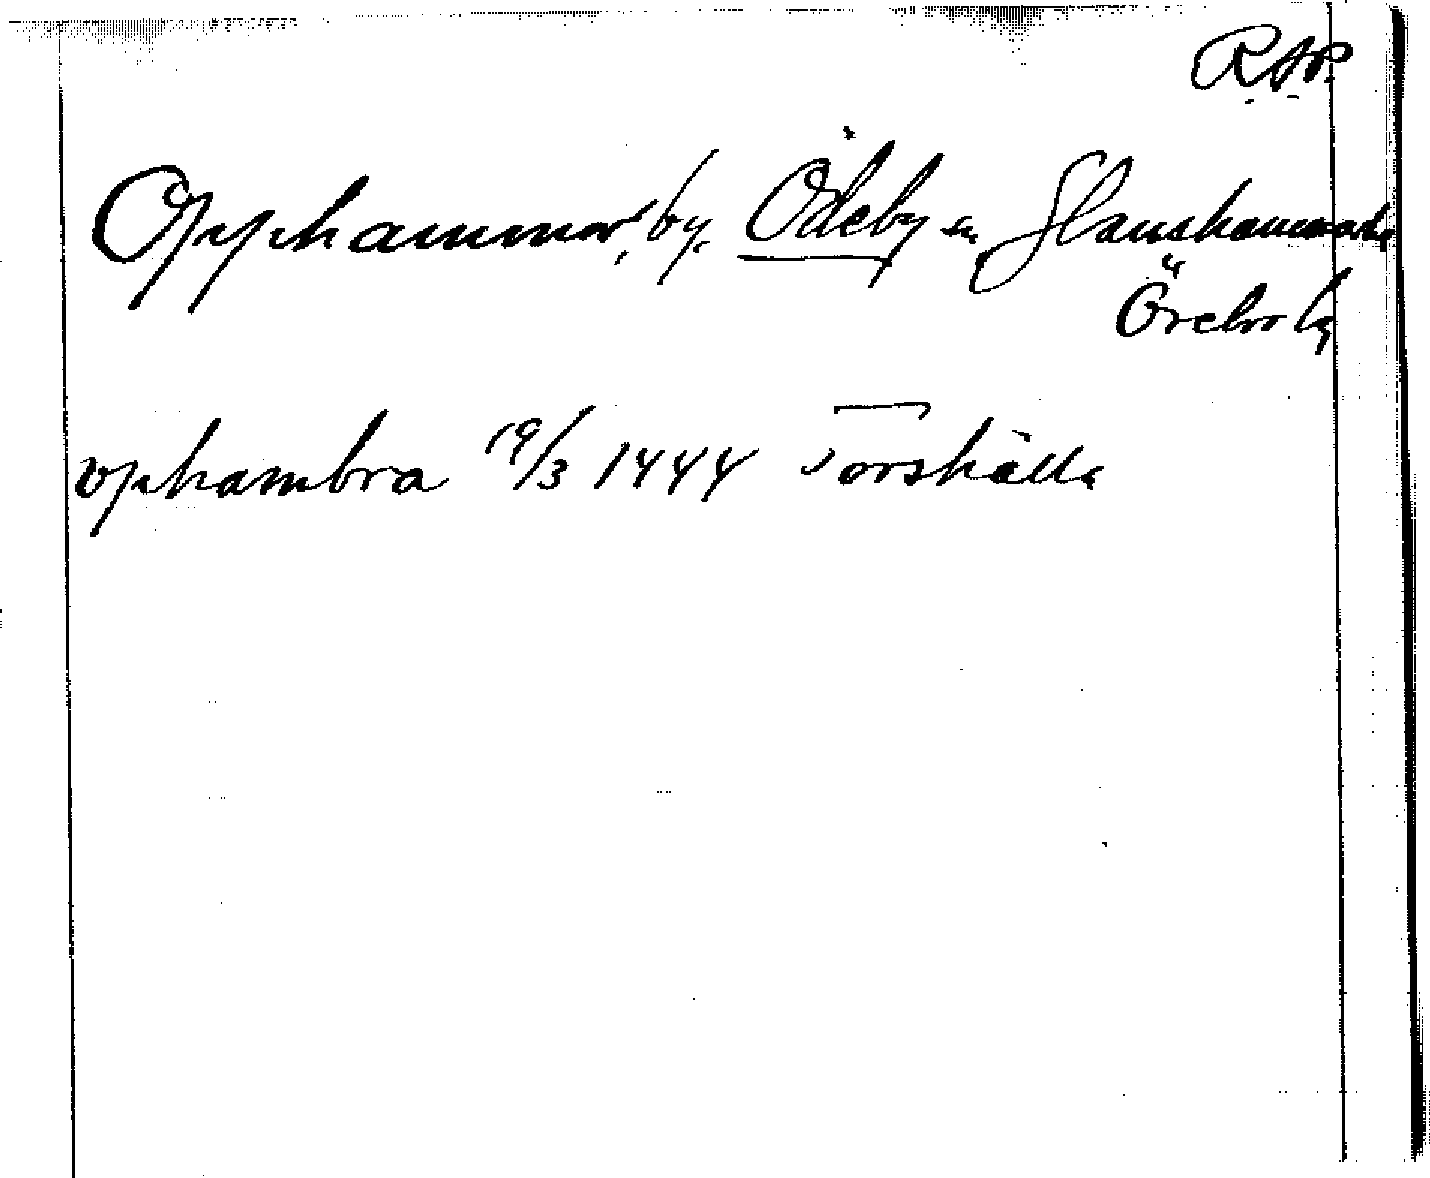 RAP.
Opphammar, by, Ödeby sn, Glanshammars
Örebro l.
ophambra 19/3 1444 Torshälla